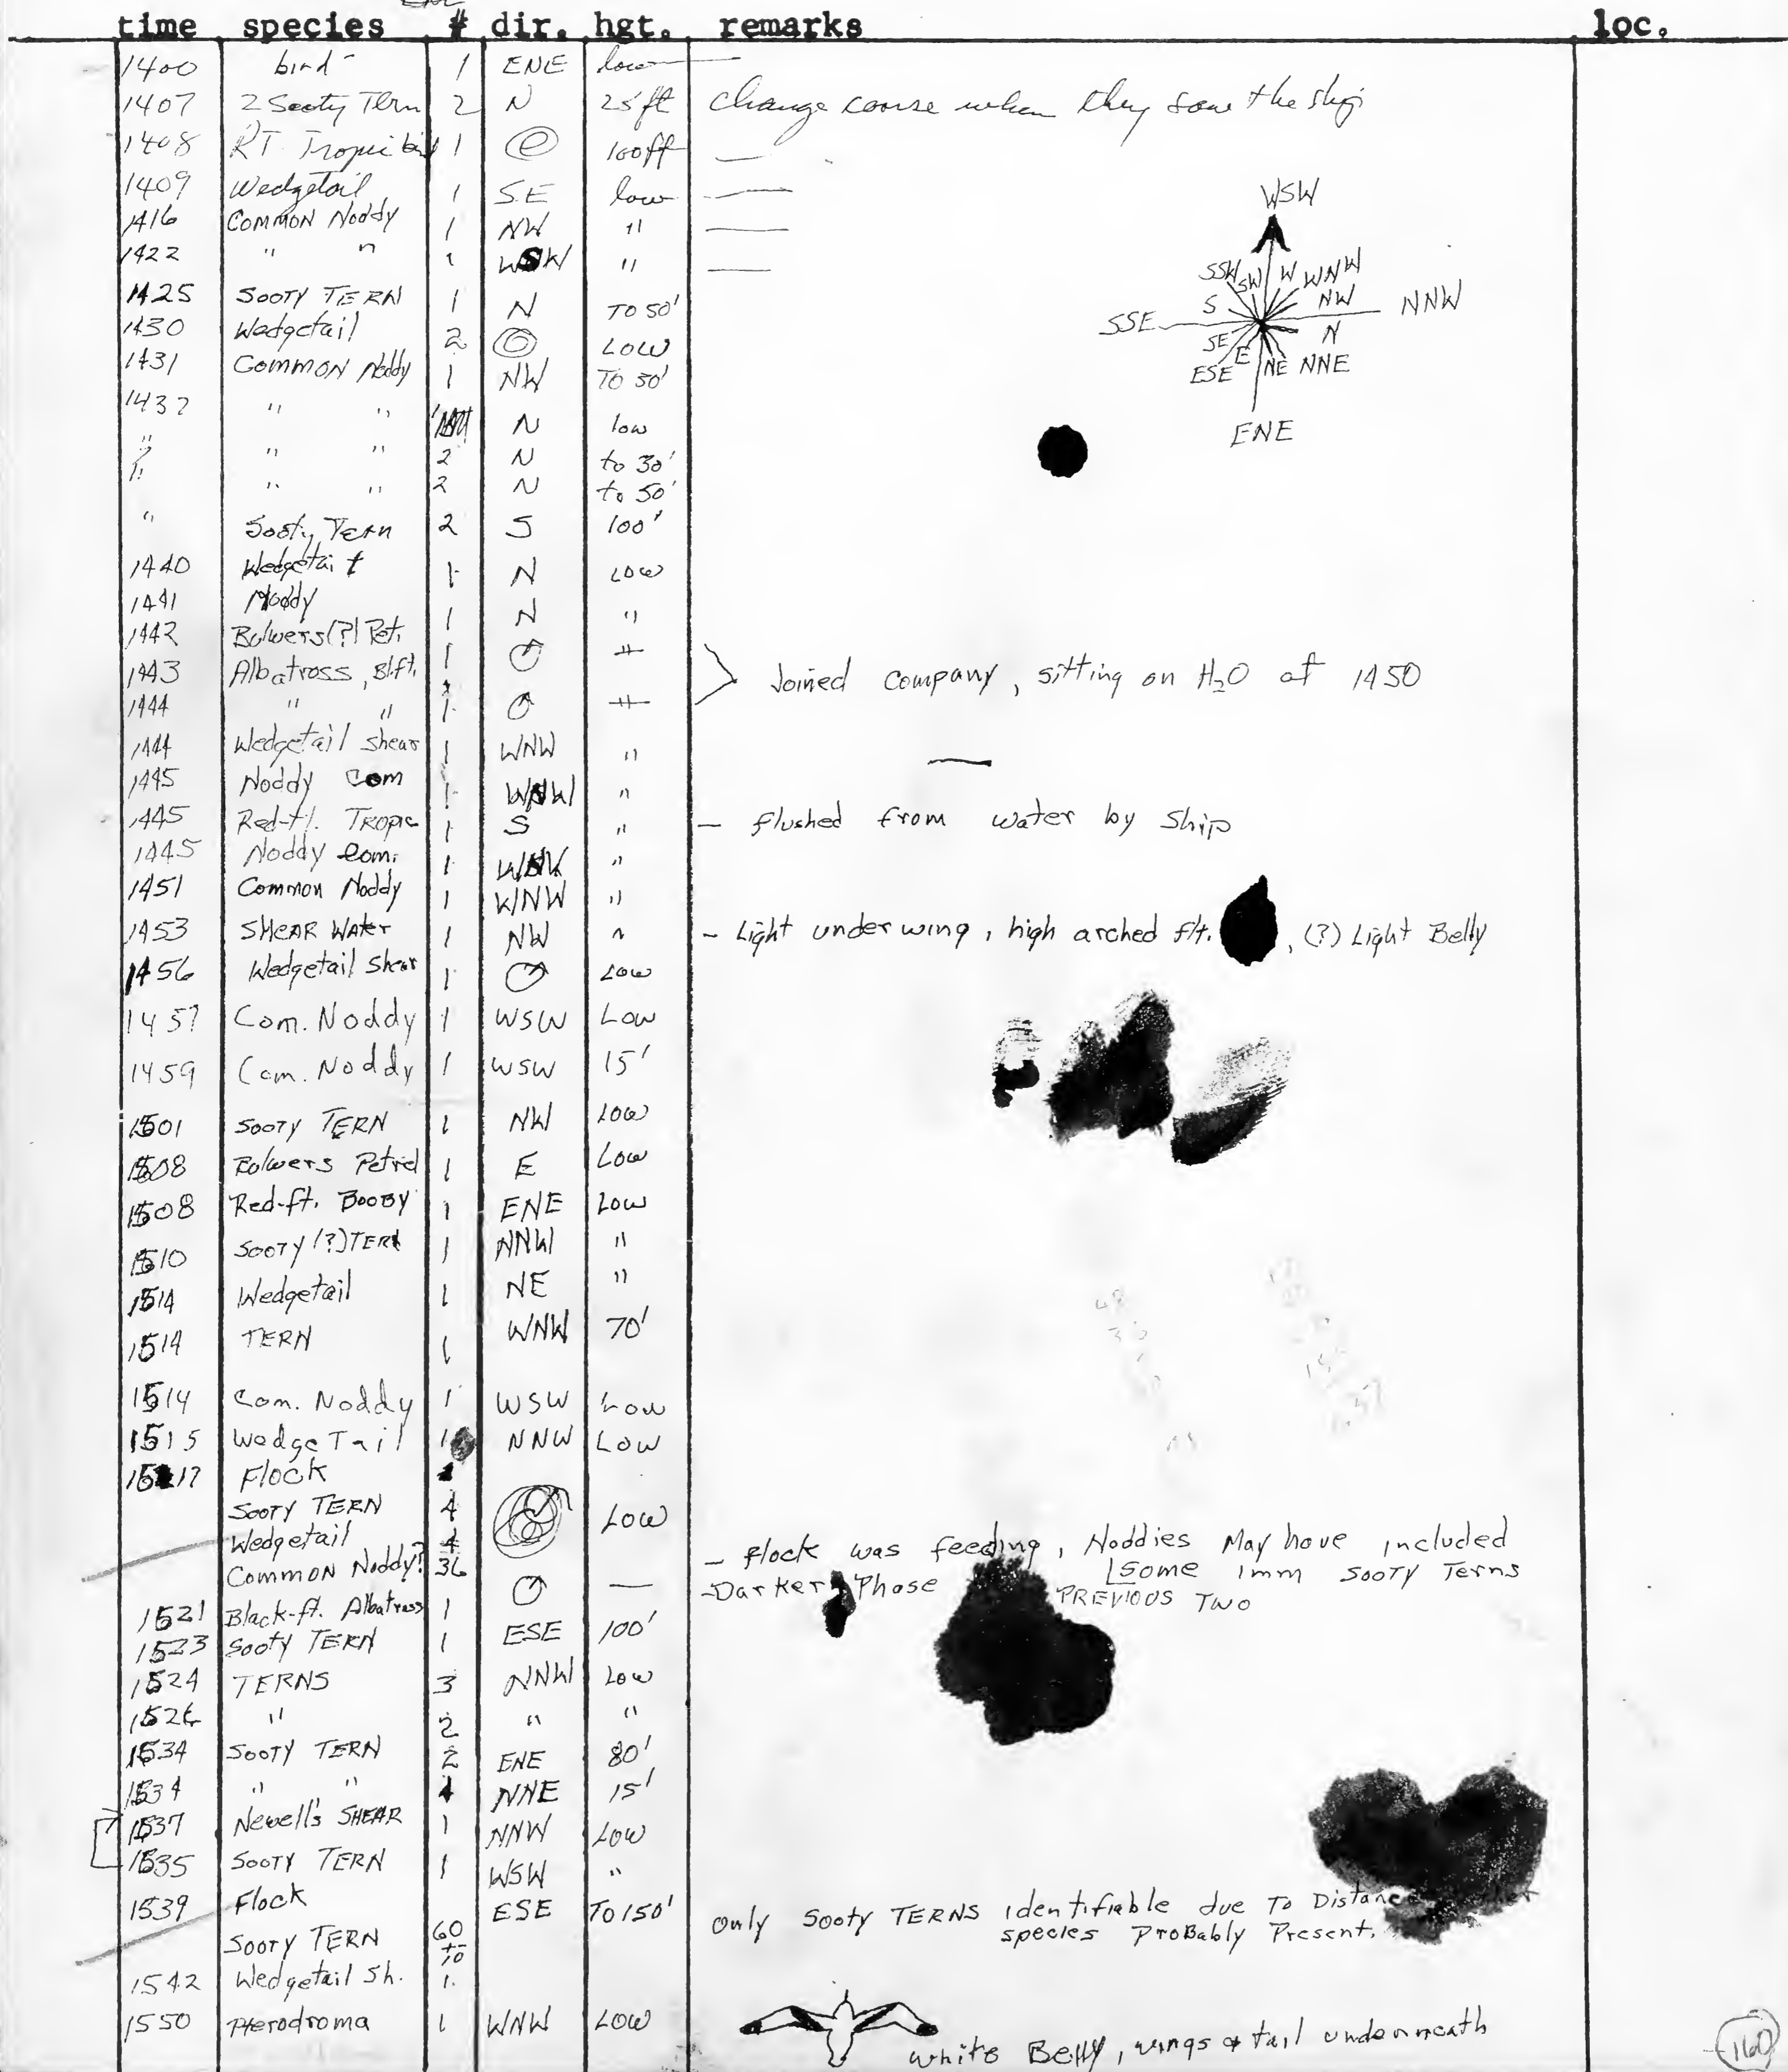 time species # dir. hgt. remarks loc.
1400 bird 1 ENE low —
1407 2 Sooty Tern 2 N 25ft change course when they saw the ship
1408 RT Tropicbird 1 100ft —
1409 Wedgetail 1 SE low —
1416 Common Noddy 1 NW " —
1422 " " 1 WSW " —
1425 SOOTY TERN 1 N TO 50'
1430 Wedgetail 2 LOW
1431 Common Noddy 1 NW TO 50'
1437 " " N low
" " " 2 N to 30'
" " " 2 N to 50'
" Sooty Tern 2 S 100'
1440 Wedgetail 1 N Low
1441 Noddy 1 N "
1442 Bulwers(?) Pet. 1
1443 Albatross, Bl.ft. 1 Joined company, sitting on H2O at 1450
1444 " " 1
1444 Wedgetail shear 1 WNW " —
1445 Noddy Com 1 WNW "
1445 Red-tl. Tropic 1 S " — flushed from water by ship
1445 Noddy Com. 1 "
1451 Common Noddy 1 WNW "
1453 SHEAR Water 1 NW " - Light under wing, high arched flt. , (?) Light Belly
1456 Wedgetail Shear 1 Low
1457 Com. Noddy 1 WSW Low
1459 Com. Noddy 1 WSW 15'
1501 SOOTY TERN 1 NW Low
1508 Bulwers Petrel 1 E Low
1508 Red-ft. Booby 1 ENE Low
1510 SOOTY (?) TERN 1 NNW "
1514 Wedgetail 1 NE "
1514 TERN 1 WNW 70'
1514 Com. Noddy 1 WSW Low
1515 Wedge Tail 1 NNW Low
1517 Flock
SOOTY TERN 4 Low
Wedgetail 4
Common Noddy? 36 - flock was feeding, Noddies May have included
some imm Sooty Terns
1521 Black-ft. Albatross 1 — -Darker Phase PREVIOUS TWO
1523 Sooty TERN 1 ESE 100'
1524 TERNS 3 NNW Low
1526 " 2 " "
1534 SOOTY TERN 2 ENE 80'
1534 " " 1 NNE 15'
1537 Newell's SHEAR 1 NNW Low
1535 SOOTY TERN 1 WSW "
1539 Flock ESE TO 150' only Sooty TERNS identifiable due To Distance
species Probably Present.
SOOTY TERN 60 to 70
1542 Wedgetail Sh. 1.
1550 Pterodroma 1 WNW Low white Belly, wings & tail underneath
WSW
SSW SW W WNW
S NW NNW
SSE N
SE E NE NNE
ESE
ENE
160